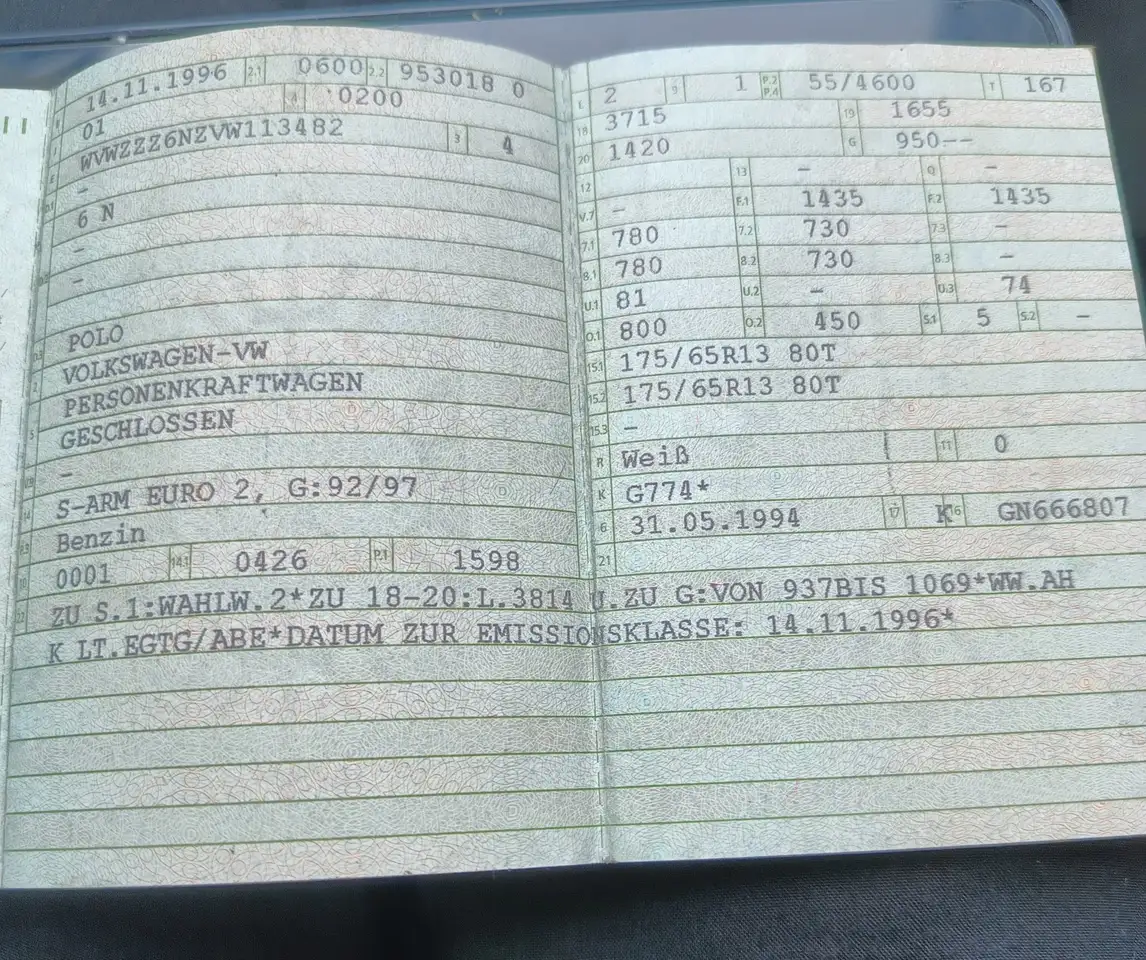 14.11.1996 2.1 0600 2.2 953018 0
01 4 0200
WVWZZZ6NZVW113482 3 4
-
6 N
-
-
POLO
VOLKSWAGEN-VW
PERSONENKRAFTWAGEN
5 GESCHLOSSEN
-
14 S-ARM EURO 2, G:92/97
P.3 Benzin
10 0001 14.1 0426 P.1 1598
22 ZU S.1:WAHLW.2*ZU 18-20:L.3814 U.ZU G:VON 937BIS 1069*WW.AH
K LT.EGTG/ABE*DATUM ZUR EMISSIONSKLASSE: 14.11.1996*
L 2 9 1 P.2 P.4 55/4600 T 167
18 3715 19 1655
20 1420 G 950--
12 13 - Q -
V.7 - F.1 1435 F.2 1435
7.1 780 7.2 730 7.3 -
8.1 780 8.2 730 8.3 -
U.1 81 U.2 - U.3 74
O.1 800 O.2 450 S.1 5 S.2 -
15.1 175/65R13 80T
15.2 175/65R13 80T
15.3 -
R Weiß 11 0
K G774*
6 31.05.1994 17 K 16 GN666807
21